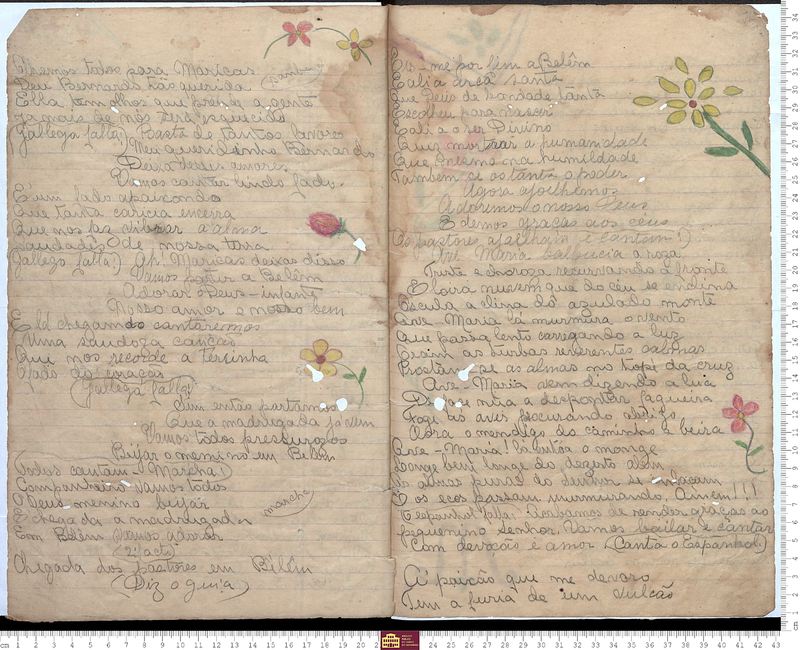 Olhemos todos para Maricas
Deu Bernardo tão querida
Ella tem olhos que prende a gente
Ja mais de nós será esquecido
(Gallego falla) Basta de tantos lavores
Meu queridinho Bernardo
Deixa desses amores
Vamos cantar lindo fado.
É um fado apaixonado
Que tanta caricia encerra
Que nos faz vibrar a alma
Saudades de nossa terra
(Gallego falla!) Oh! Maricas deixas disso
Vamos partir a Belêm
Adorar o Deus-infante
Nosso amor e nosso bem
E lá chegando cantaremos
Uma saudoza canção
Que nos recorde a terrinha
O fado do coração
(Gallego falla)
Sim então partamos
Que a madrugada ja vem
Vamos todos pressurozos
Beijar o menino em Belêm
(Todos cantam - Marcha!)
Companheiro vamos todos
O Deus menino beijar
É chegada a madrugada
Em Belêm vamos adorar
marcha
(2º acto)
Chegada dos pastores em Bélêm
(Diz o guia)
Eis-me por fim a Belêm
Eali a area santa
Que Deus de bondade tanta
Escolheu para nascer
Eali o ser Divino
Quis mostrar a humanidade
Que mesmo na humildade
Tambem se os tenta o poder
Agora ajoelhemos
Adoremos o nosso Deus
E demos graças aos céus
Os pastores ajoelham e cantam!)
Ave Maria balbucia a roza
Triste e choroza recurvando a fronte
E loira nuvem que do céu se enclina
Escula a clina do azulado monte
Ave-Maria lá murmura o vento
Que passa lento carregando a luz
Ceciam as turbas reverentes
Prostam-se as almas no topé da cruz
Ave-Maria vem dizendo a lua
Foge as aves procurando abrigo
Óra o mendigo do caminho a beira
Ave-Maria! balbucia o monge
Longe bem longe do dezerto além
As almas puras do Senhor se enlaçam
E os ecos passam murmurando, Amem!!!
O espanhol falla! Acabamos de render graças ao
pequenino Senhor. Vamos bailar e cantar
Com devoção e amor (Canta o Espanhol)
A paixão que me devora
Tem a furia de um vulcão